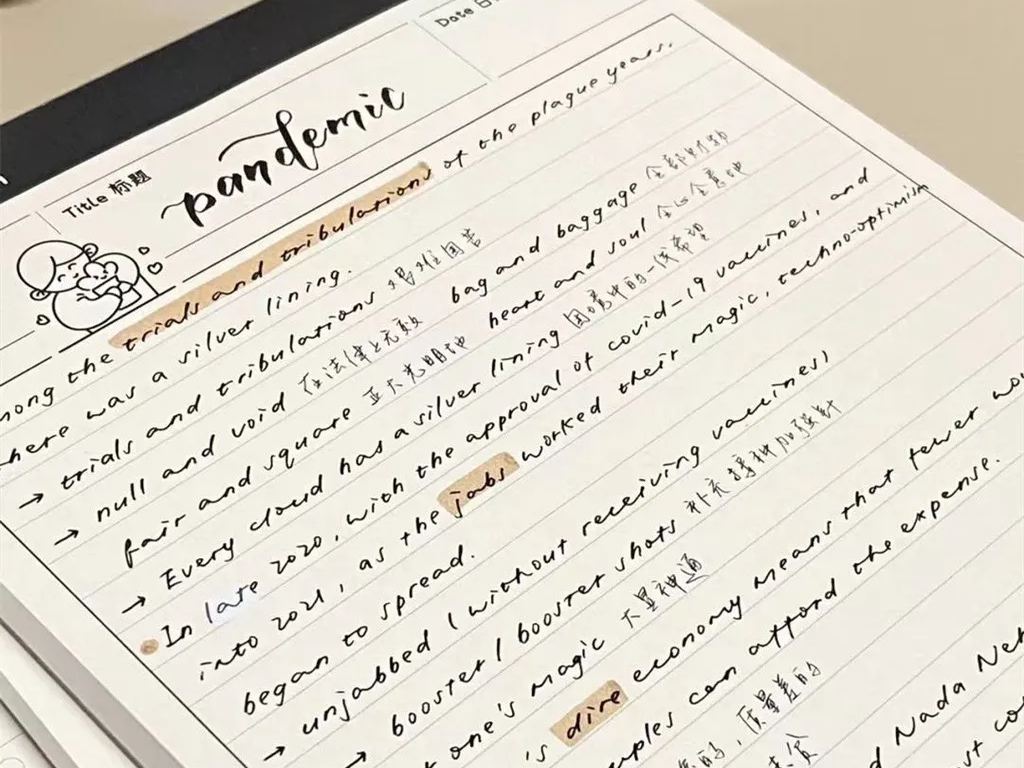 Date 日
Title 标题
pandemic
mong the trials and tribulations of the plague years,
here was a silver lining.
→ trials and tribulations 艰难困苦 bag and baggage 全部财物
→ null and void 在法律上无效 heart and soul 全心全意地
fair and square 正大光明地
→ Every cloud has a silver lining 困境中的一线希望
In late 2020, with the approval of covid-19 vaccines, and
into 2021, as the jabs worked their magic, techno-optimism
began to spread.
→ unjabbed (without receiving vaccines)
→ booster / booster shots 补充接种加强针
one's magic 大显神通
's dire economy means that fewer
can afford the expense.
，质量差的
Nada